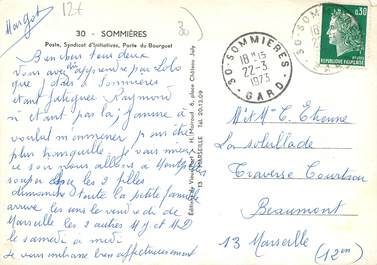 Margot
12€
30
30 - SOMMIÈRES
Poste, Syndicat d'Initiatives, Porte du Bourguet
Bonjour tous deux
Vous avez dû apprendre par Lolo
que j'étais à Sommières
étant fatiguée Raymond
n'étant pas là, Janine a
voulut m'emmener je suis
plus tranquille, je vais mieux
ce soir nous allons à
souper chez les 2 filles
dimanche toute la petite famille
arrive les uns le vendredi de
Marseille les 2 autres M J et M D
le samedi à midi
je vous embrasse bien affectueusement
H. Marrou
6, place Château Joly
13 MARSEILLE Tél. 20.13.09
30-SOMMIÈRES
18H15
22-3
1973
GARD
30-SOM
18H
22
0,30
REPUBLIQUE FRANÇAISE
M et Me C. Etienne
La soleillade
Traverse Courtrau
Beaumont
13 Marseille
(12em)